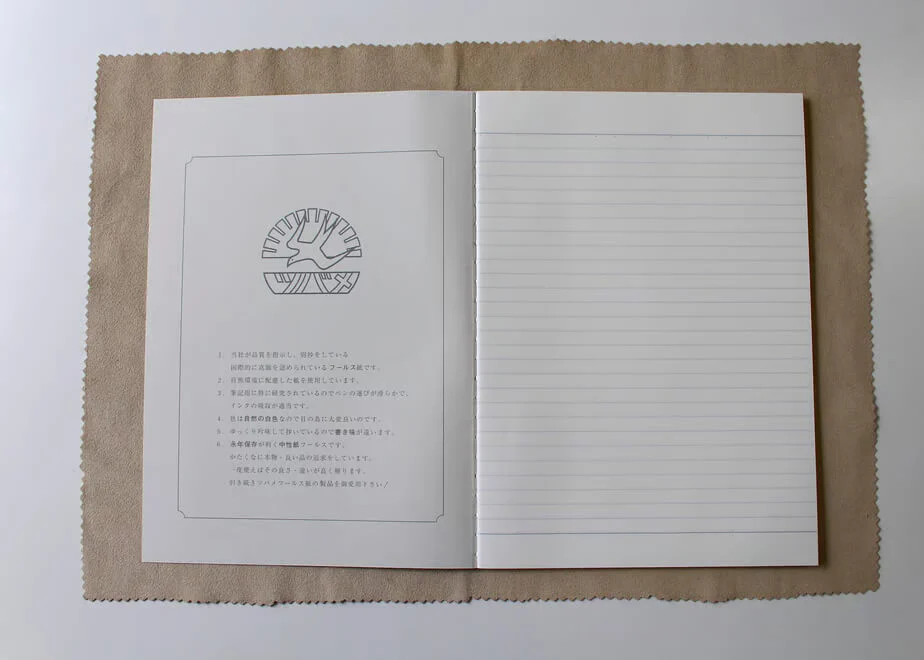 ツバメ
1. 当社が品質を指示し、別抄をしている
国際的に真価を認められているフールス紙です。
2. 自然環境に配慮した紙を使用しています。
3. 筆記用に特に研究されているのでペンの運びが滑らかで、
インクの吸収が適当です。
4. 色は自然の白色なので目の為に大変良いのです。
5. ゆっくり吟味して抄いているので書き味が違います。
6. 永年保存が利く中性紙フールスです。
かたくなに本物・良い品の追求をしています。
一度使えばその良さ・違いが良く解ります。
引き続きツバメフールス紙の製品を御愛用下さい！